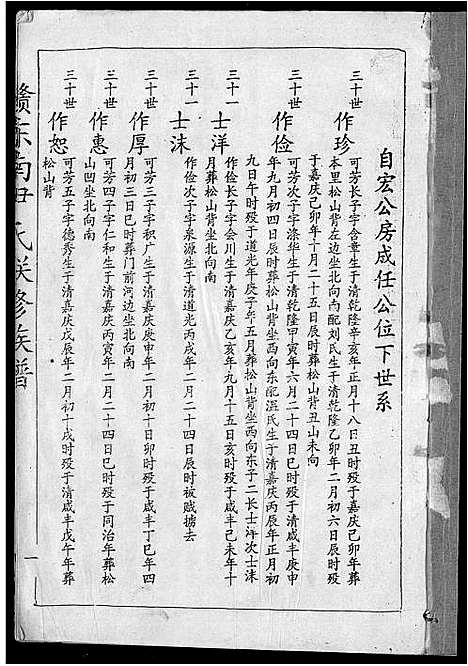 自宏公房成任公位下世系
三十世
作珍
可芳长子字含章生于清乾隆辛亥年正月十八日丑时殁于嘉庆己卯年葬
本里松山背左边坐北向南配刘氏生于清乾隆乙卯年二月初六日辰时殁
于嘉庆己卯年十月二十五日辰时葬松山背丑山未向
三十世
作俭
可芳次子字涤华生于清乾隆甲寅年六月二十四日辰时殁于清咸丰庚申
年九月初四日辰时葬松山背坐西向东配温氏生于清嘉庆丙辰年正月初
九日午时殁于道光年庚子年五月葬松山背坐西向东子二长士洋次士沫
三十一
士洋
作俭长子字会川生于清嘉庆乙亥年九月十五日亥时殁于咸丰己未年十
月葬松山背坐北向南
三十一
士沫
作俭次子字泉源生于清道光丙戌年二月二十四日辰时被贼掳去
三十世
作厚
可芳三子字积广生于清嘉庆庚申年二月初十日卯时殁于咸丰丁巳年四
月初三日巳时葬门前河边坐北向南
三十世
作惠
可芳四子字仁和生于清嘉庆 年二月二十四日巳时殁于同治年葬松
山凹坐北向南
三十世
作恕
可芳五子字德秀生于清嘉庆戊辰年二月初十戌时殁于清咸丰戊午年葬
松山背
赣东南尹氏联修族谱
一